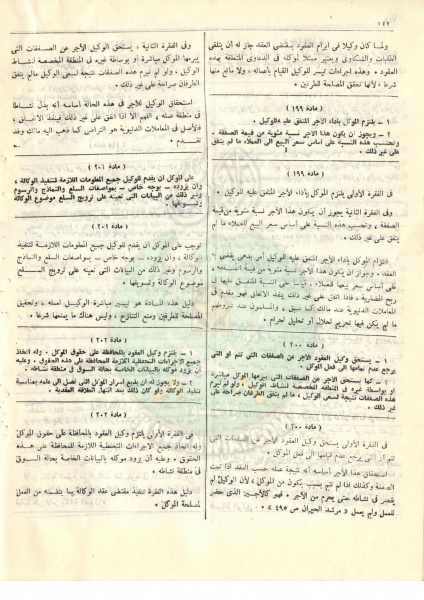 ١٤٢
ولما كان وكيلا فى ابرام العقود بمقتضى العقد جاز له أن يتلقى
الطلبات والشكاوى ويعتبر ممثلا لموكله فى الدعاوى المتعلقة بهذه
العقود . وهذه اجراءات تيسر للوكيل القيام بأعماله ، ولا مانع منها
شرعا ، لأنها تحقق المصلحة للطرفين .
( مادة ١٩٩ )
١ – يلتزم الموكل بأداء الأجر المتفق عليه للوكيل .
٢ – ويجوز أن يكون هذا الأجر نسبة مئوية من قيمة الصفقة ،
وتحتسب هذه النسبة على أساس سعر البيع الى العملاء ما لم يتفق
على غير ذلك .
( مادة ١٩٩ )
فى الفقرة الأولى يلتزم الموكل بأداء الأجر المتفق عليه للوكيل .
وفى الفقرة الثانية يجوز أن يكون هذا الأجر نسبة مئوية من قيمة
الصفقة ، وتحسب هذه النسبة على أساس سعر البيع للعملاء ما لم
يتفق على غير ذلك .
التزام الموكل بأداء الأجر المتفق عليه الوكيل أمر بدهى يقضى به
العقد ، وجواز أن يكون هذا الأجر نسبة مئوية من قيمة الصفقة ،
على أساس سعر بيعها للعملاء ، قياسا على النسبة المتفق عليها فى
ربح المضاربة ، فاذا اتفق على غير ذلك ينفذ الاتفاق فهو مقدم فى
المعاملات الدنيوية عند مالك كما سبق ، والمسلمون عند شروطهم
ما لم يكن فيها تحريم لحلال أو تحليل لحرام .
( مادة ٢٠٠ )
١ – يستحق وكيل العقود الأجر عن الصفقات التى تتم أو التى
يرجع عدم تمامها الى فعل الموكل .
٢ – كما يستحق الأجر عن الصفقات التى يبرمها الموكل مباشرة
أو بواسطة غيره فى المنطقة المخصصة لنشاط الوكيل ، ولو لم تبرم
هذه الصفقات نتيجة لسعى الوكيل ، ما لم يتفق الطرفان صراحة على
غير ذلك .
( مادة ٢٠٠ )
فى الفقرة الأولى يستحق وكيل العقود الأجر عن الصفقات التى
تتم أو التى يرجع عدم تمامها الى فعل الموكل .
استحقاق هذا الأجر أساسه أنه نتيجة عمله حسب العقد اذا تمت
الصفقة وكذلك اذا لم تتم بسبب يكون من الموكل ، لأن الوكيل لم
يقصر فى نشاطه حتى يحرم من الأجر . فهو كالأجير الذى حضر
للعمل ولم يعمل « مرشد الحيران ص ٤٩٥ » .
وفى الفقرة الثانية ، يستحق الوكيل الأجر عن الصفقات التى
يبرمها الموكل مباشرة أو بوساطة غيره فى المنطقة المخصصة لنشاط
الوكيل ، ولو لم تبرم هذه الصفقات نتيجة لسعى الوكيل مالم يتفق
الطرفان صراحة على غير ذلك .
استحقاق الوكيل للأجر فى هذه الحالة أساسه أنه بذل نشاطا
فى منطقة عمله ، اللهم الا اذا اتفق على غير ذلك فينفذ الاتفاق ،
فالأصل فى المعاملات الدنيوية هو التراضى كما ذهب اليه مالك وقد
تقدم .
( مادة ٢٠١ )
على الموكل أن يقدم للوكيل جميع المعلومات اللازمة لتنفيذ الوكالة ،
وأن يزوده – بوجه خاص – بمواصفات السلع والنماذج والرسوم
وغير ذلك من البيانات التى تعينه على ترويج السلع موضوع الوكالة
وتسويقها .
( مادة ٢٠١ )
توجب على الموكل أن يقدم للوكيل جميع المعلومات اللازمة لتنفيذ
الوكالة ، وأن يزوده – بوجه خاص – بمواصفات السلع والنماذج
والرسوم وغير ذلك من البيانات التى تعينه على ترويج السلع
موضوع الوكالة وتسويقها .
دليل هذه المادة هو تيسير مباشرة الوكيل لعمله ، وتحقيق
المصلحة للطرفين ومنع التنازع ، وليس هناك ما يمنعها شرعا .
( مادة ٢٠٢ )
١ – يلتزم وكيل العقود بالمحافظة على حقوق الموكل . وله اتخاذ
جميع الاجراءات التحفظية اللازمة للمحافظة على هذه الحقوق . وعليه
أن يزود موكله بالبيانات الخاصة بحالة السوق فى منطقة نشاطه .
٢ – ولا يجوز له أن يذيع أسرار الموكل التى تصل الى علمه بمناسبة
تنفيذ الوكالة ولو كان ذلك بعد انتهاء العلاقة العقدية .
( مادة ٢٠٢ )
فى الفقرة الأولى يلتزم وكيل العقود بالمحافظة على حقوق الموكل
وله اتخاذ جميع الاجراءات التحفظية اللازمة للمحافظة على هذه
الحقوق . وعليه أن يزود موكله بالبيانات الخاصة بحالة السوق
فى منطقة نشاطه .
دليل هذه الفقرة تنفيذ مقتضى عقد الوكالة بما يتضمنه من العمل
لمصلحة الموكل .